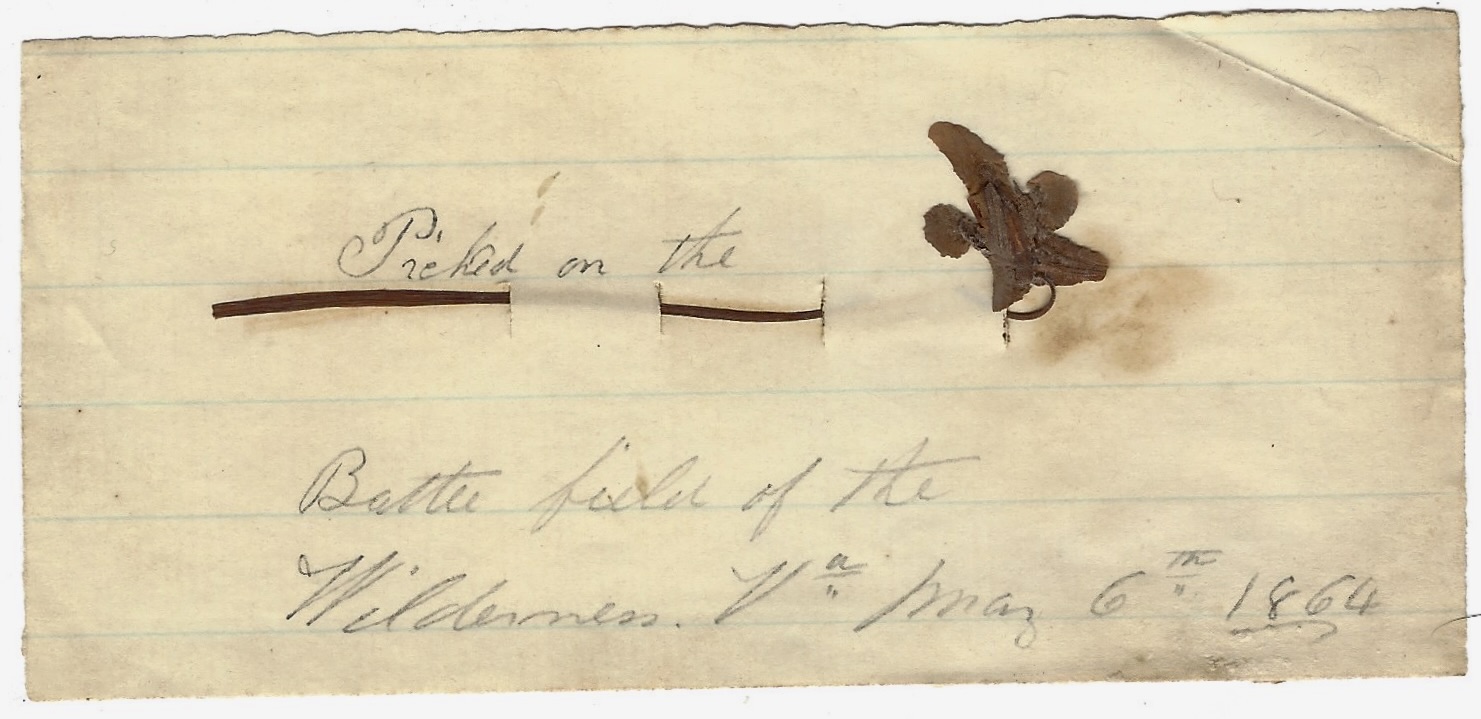 Picked on the
Battle field of the
Wilderness. Va May 6th 1864